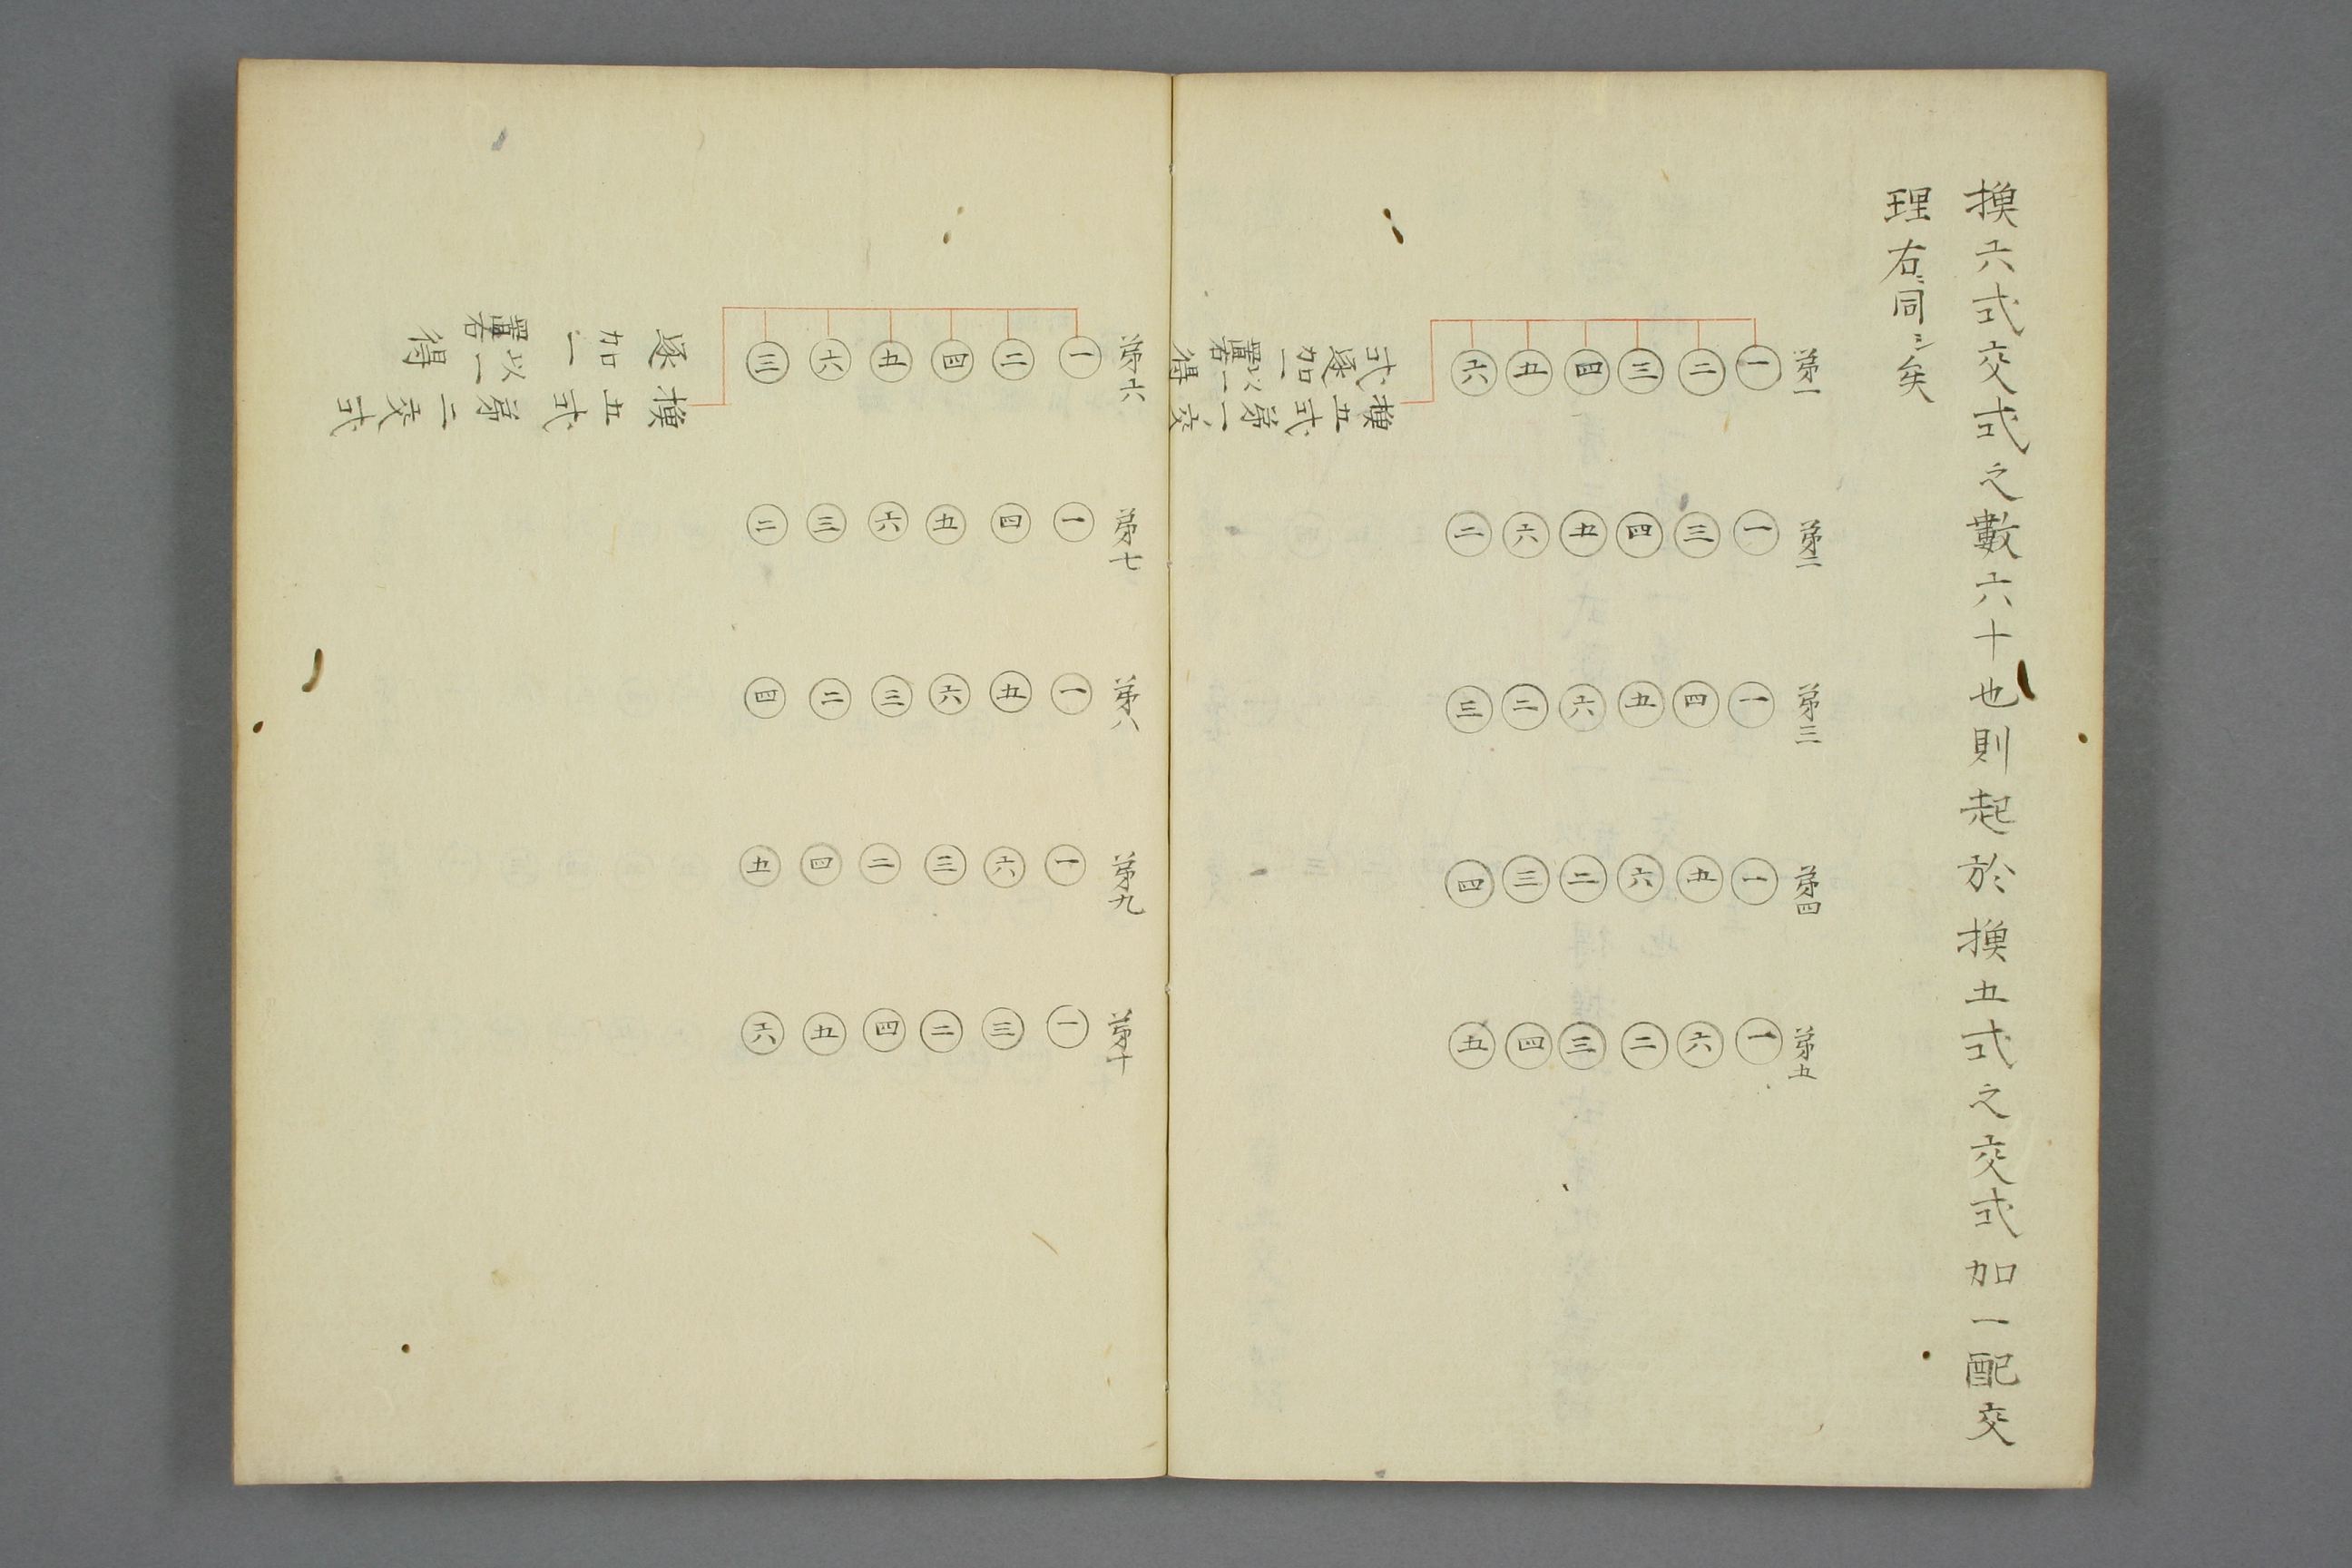 換六式交式之數六十也則起於換五式之交式加一配交
理右ニ同シ矣
第一
一二三四五六
換五式第一交
式逐加一以一置右得
第二
一三四五六二
第三
一四五六二三
第四
一五六二三四
第五
一六二三四五
第六
一二四五六三
換五式第二交式
逐加一以一置右得
第七
一四五六三二
第八
一五六三二四
第九
一六三二四五
第十
一三二四五六